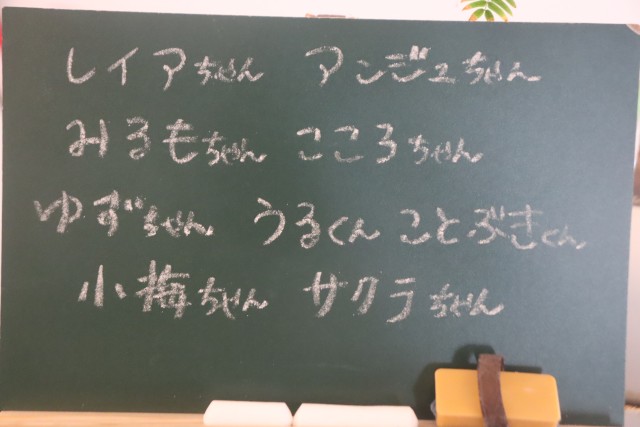 レイアちゃん アンジュちゃん
みるもちゃん こころちゃん
ゆずちゃん うるくん ことぶきくん
小梅ちゃん サクラちゃん